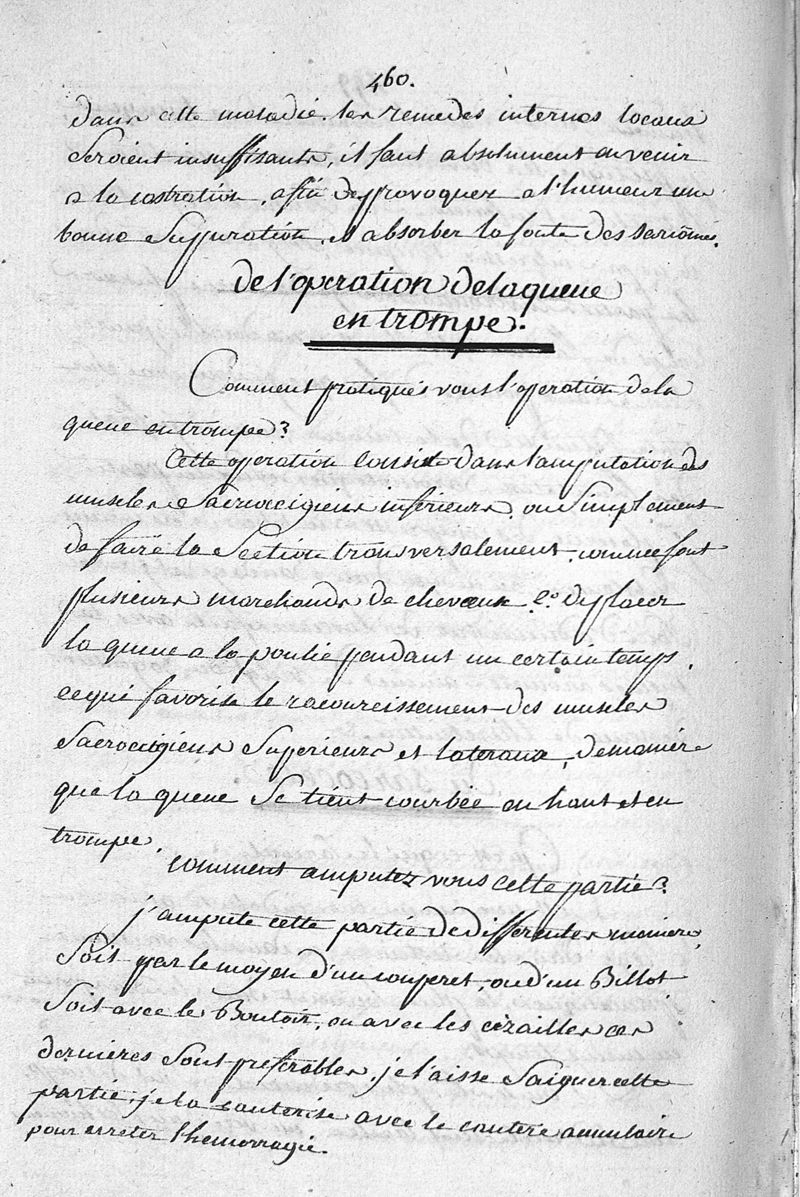 460.
dans cette maladie, les remedes internes locaux
Seroient insuffisants, il faut absolument en venir
a la castration, afin de provoquer a l'humeur une
bonne Suppuration, et absorber la fonte des sarcomes.
de l'operation de la queue
en trompe.
Comment pratiqués vous l'operation de la
queue en trompe?
Cette operation consiste dans l'amputation des
muscles Sacrocigiens inferieurs, ou Simplement
de faire la Section transversalement, comme font
plusieurs marchands de chevaux. 2.o de placer
la queue a la poulie pendant un certain temps,
ce qui favorise le racourcissement des muscles
Sacrocigiens Superieurs et lateraux, de maniere
que la queue Se tient courbée en haut et en
trompe.
Comment amputez vous cette partie?
j'ampute cette partie de differentes maniere,
Soit par le moyen d'un couperet, ou d'un Billot
Soit avec le Boutoir, ou avec les cizailles ces
dernieres Sont preferables, je laisse Saigner cette
partie, je la cauterise avec le cautere annulaire
pour arreter l'hemorragie.